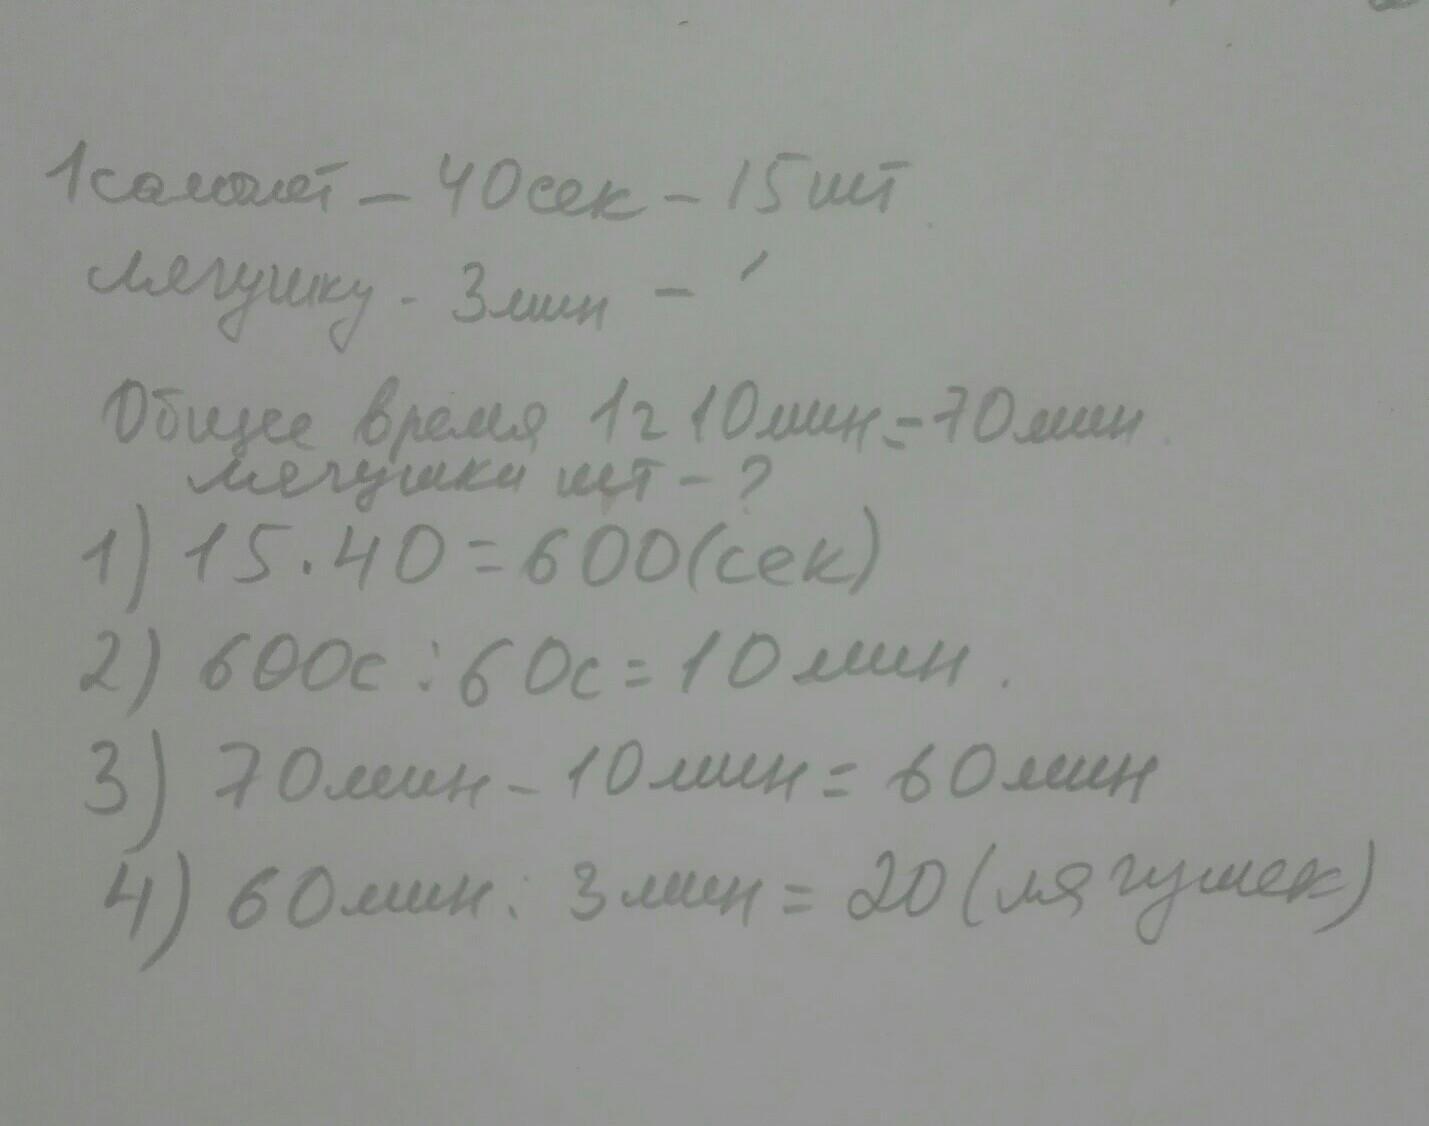 1 самолёт - 40 сек - 15 шт
лягушку - 3 мин -
Общее время 1 г 10 мин = 70 мин.
лягушки шт - ?
1) 15 · 40 = 600 (сек)
2) 600с : 60с = 10 мин.
3) 70 мин - 10 мин = 60 мин
4) 60 мин : 3 мин = 20 (лягушек)